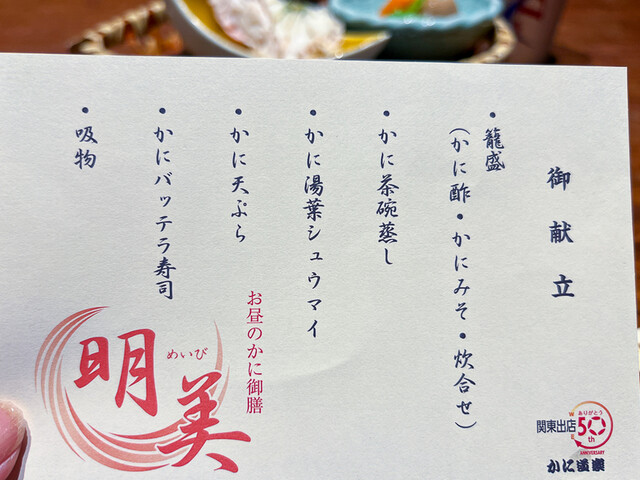 御献立
• 籠盛
(かに酢・かにみそ・炊合せ)
• かに茶碗蒸し
• かに湯葉シュウマイ
• かに天ぷら
• かにバッテラ寿司
• 吸物
お昼のかに御膳
めいび
明美
WE
関東出店
ありがとう
50th
ANNIVERSARY
かに道楽